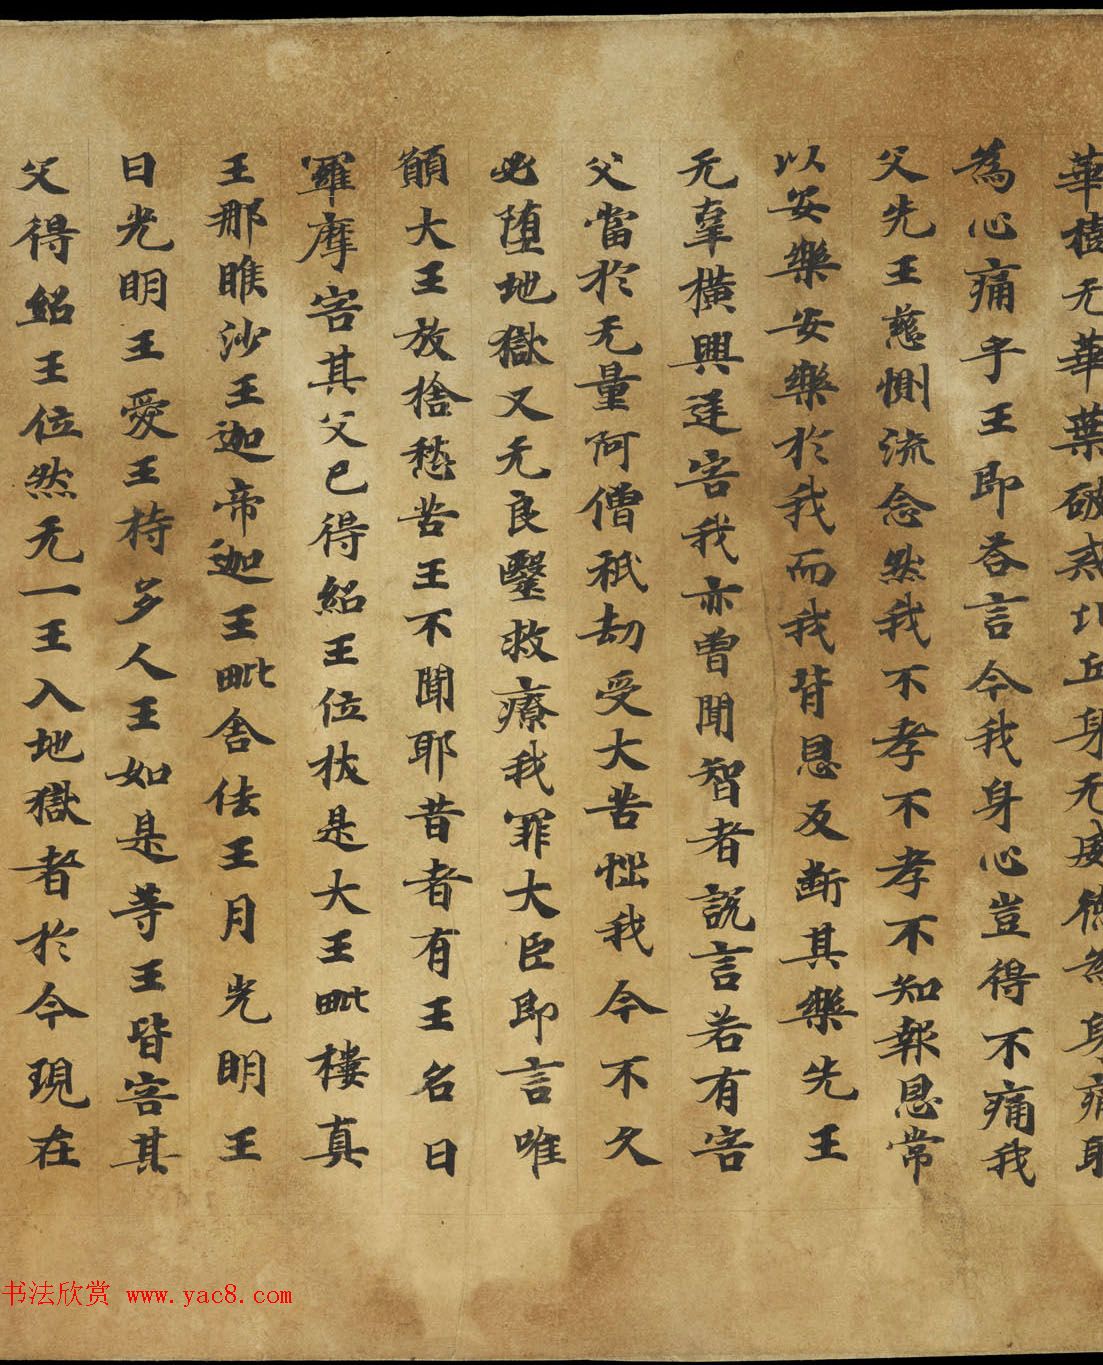 華樹无華葉破惑比丘身无威德為身痛耶
為心痛乎王即荅言今我身心豈得不痛我
父先王慈惻流念然我不孝不孝不知報恩常
以安樂安樂於我而我背恩反断其樂先王
无辜橫興逆害我亦曾聞智者說言若有害
父當於无量阿僧祇劫受大苦惱我今不久
必堕地獄又无良毉救療我罪大臣即言唯
願大王放捨愁苦王不聞耶昔者有王名曰
羅摩害其父已得紹王位𣏓是大王毗樓真
王那睢沙王迦帝迦王毗舍佉王月光明王
日光明王愛王持多人王如是等王皆害其
父得紹王位然无一王入地獄者於今現在
书法欣赏 www.yac8.com